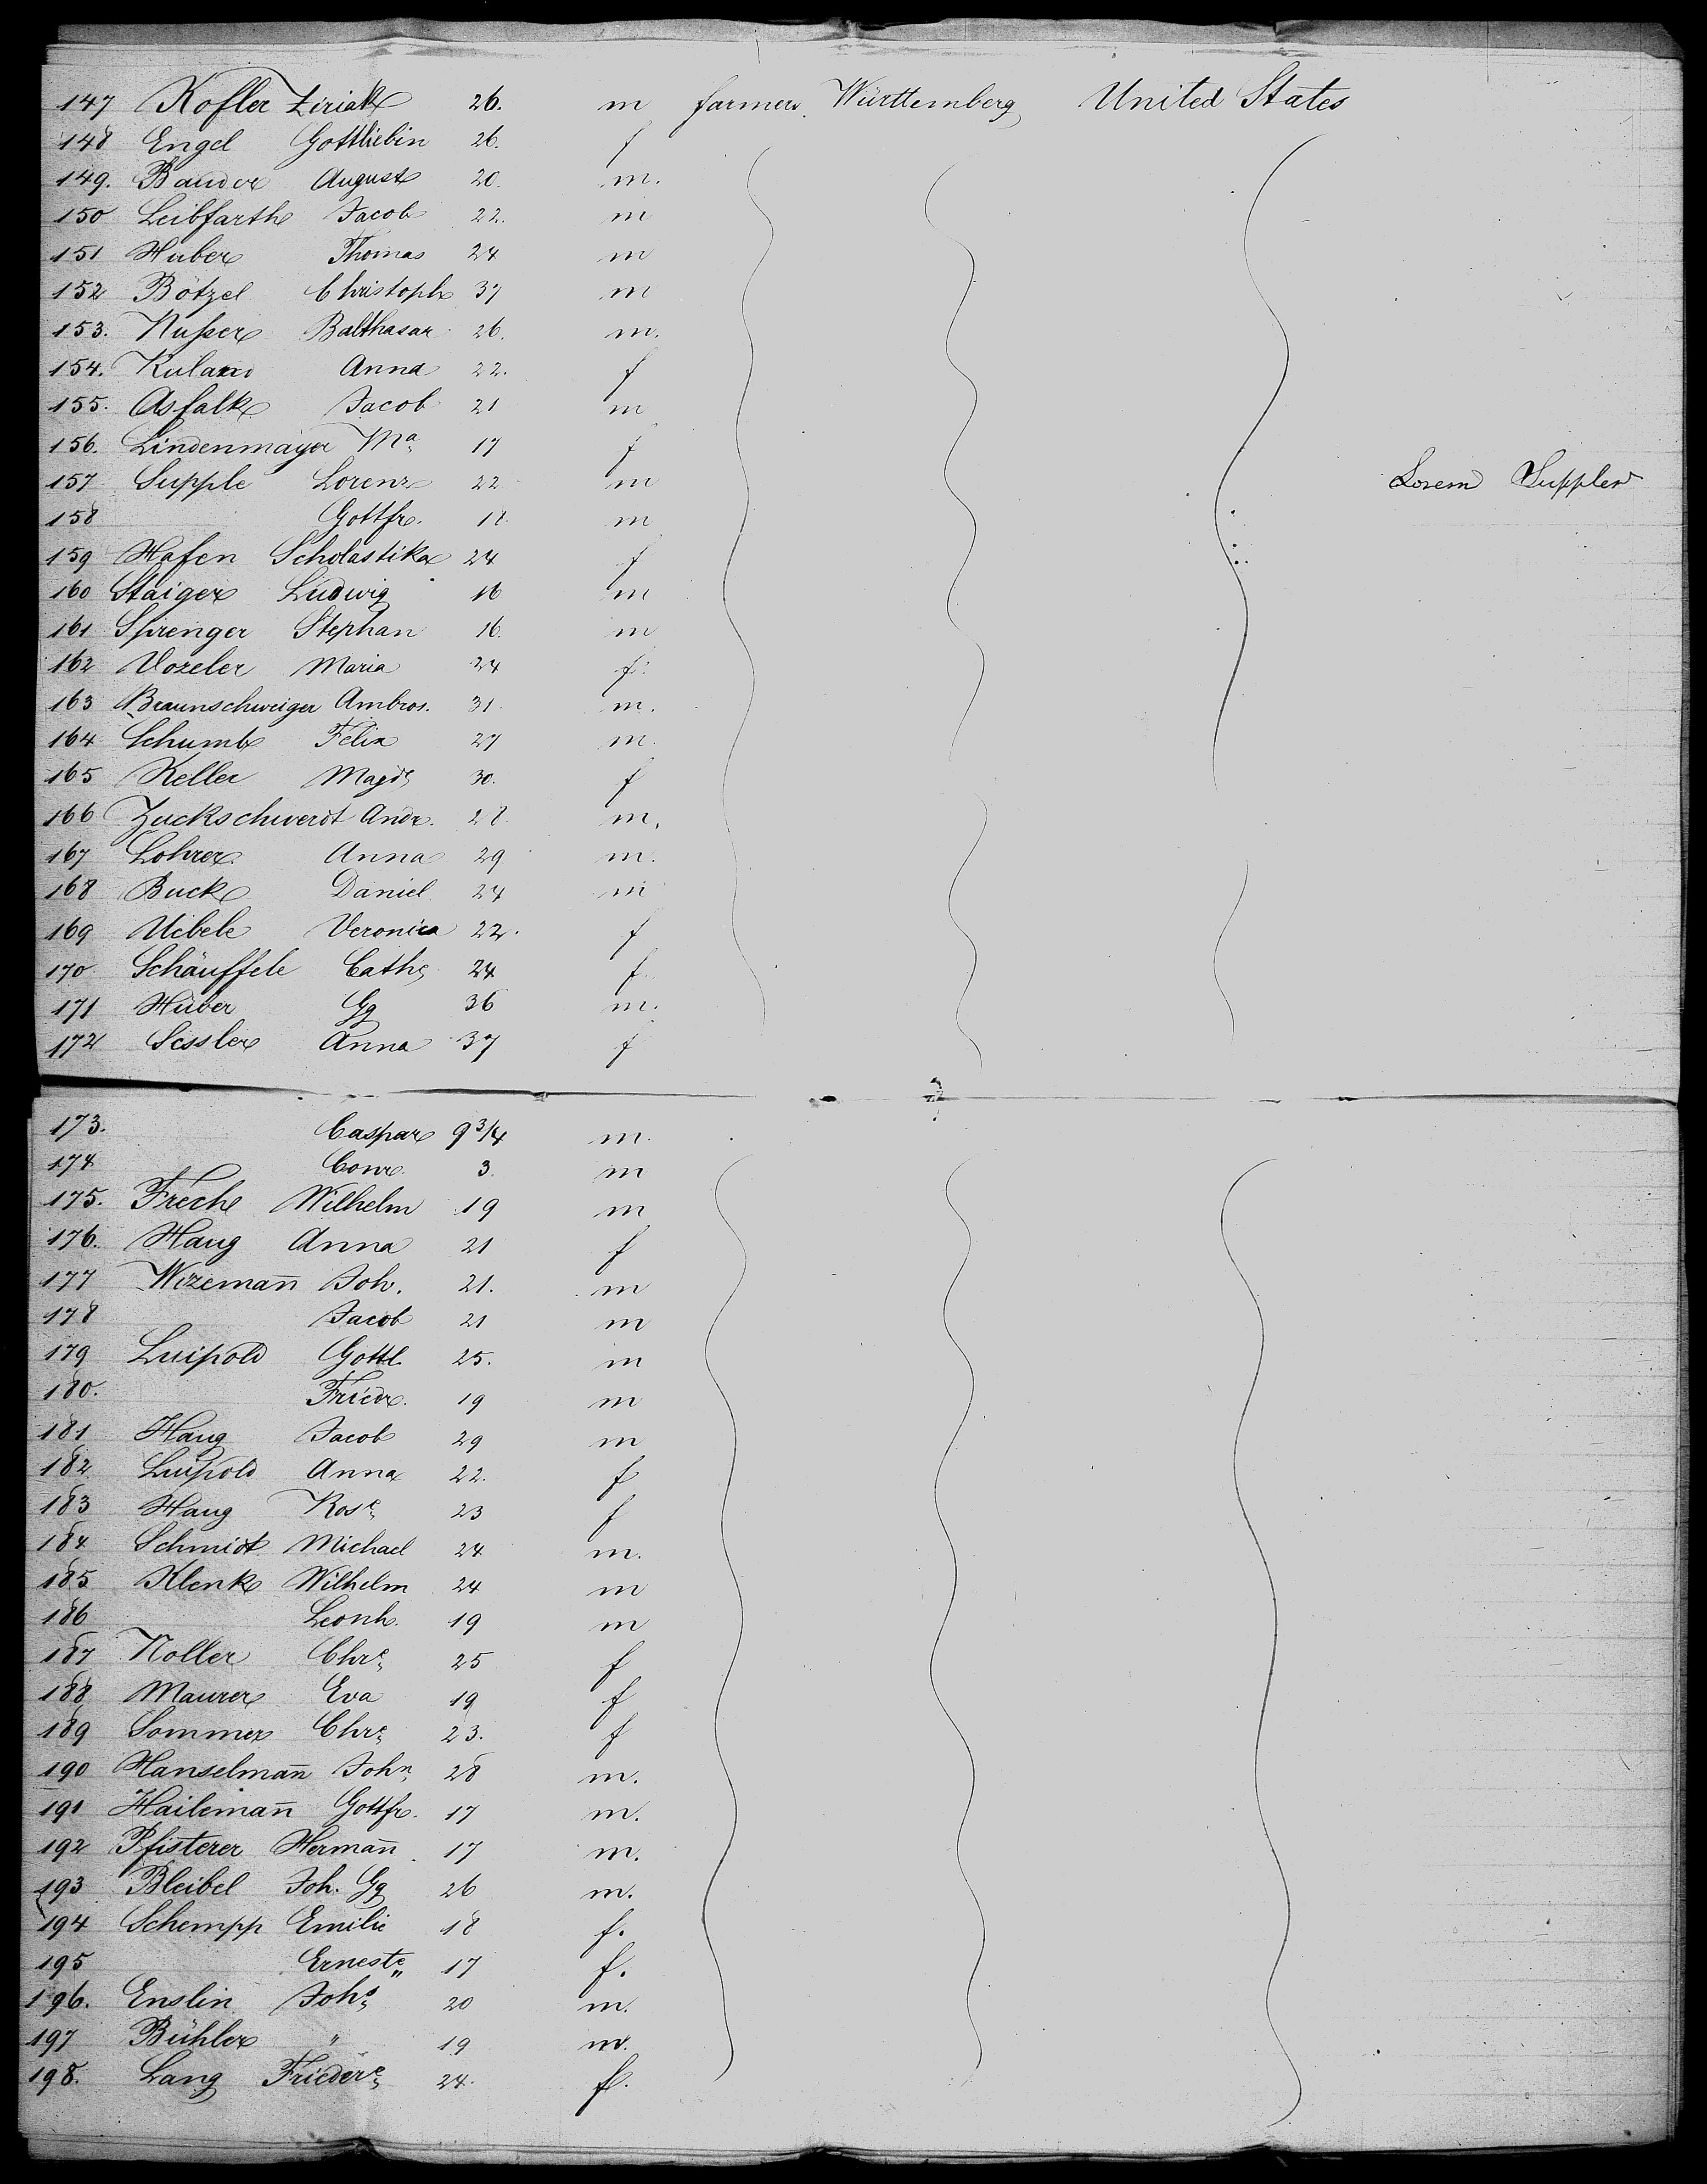 147 Kofler Ziriak 26. m farmers. Württemberg United States
148 Engel Gottliebin 26. f
149. Bauder August 20. m.
150 Leibfarth Jacob 22. m
151 Huber Thomas 24 m
152 Bötzel Christoph 37 m
153. Nußer Balthasar 26. m.
154. Ruland Anna 22. f
155. Asfalk Jacob 21 m
156. Lindenmayer Ma 17 f
157 Supple Lorenz 22 m Lorem Supplew
158 Gottfr. 18. m
159 Hafen Scholastika 24 f
160 Staiger Ludwig 16 m
161 Sprenger Stephan 16. m
162 Vozeler Maria 24 f.
163 Braunschweiger Ambros. 31. m.
164 Schumb Felix 27 m.
165 Keller Magd. 30. f
166 Zuckschwerdt Andr. 28. m.
167 Lohrer Anna 29 m.
168 Buck Daniel 24 m
169 Uebele Veronica 22. f
170 Schäuffele Cath. 24 f.
171 Huber Gg 36 m.
172 Sessler Anna 37 f
173. Caspar 9 3/4 m.
174 Conr. 3. m
175. Frech Wilhelm 19 m
176. Haug Anna 21 f
177 Wizemañ Joh. 21. m
178 Jacob 21 m
179 Luipold Gottl. 25. m
180. Friedr. 19 m
181 Haug Jacob 29 m
182 Luipold Anna 22. f
183 Haug Rose 23 f
184 Schmidt Michael 24 m.
185 Klenk Wilhelm 24 m
186 Leonh. 19 m
187 Noller Chre 25 f
188 Maurer Eva 19 f
189 Sommer Chre 23. f
190 Hanselmañ John 28 m.
191 Hailemañ Gottfr. 17 m.
192 Pfisterer Hermañ 17 m.
193 Bleibel Joh. Gg 26 m.
194 Schempp Emilie 18 f.
195 Erneste 17 f.
196. Enslin Johs 20 m.
197 Bühler " 19 m.
198. Lang Friedere 24. f.